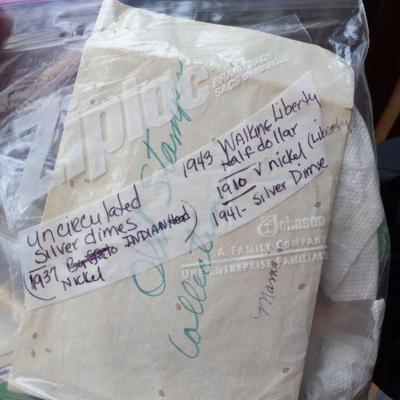 Ziploc
BRAND BAGS
SACS DE MARQUE
Old Stamps
Collection
uncirculated
silver dimes
(1937 Buffalo INDIAN Head)
Nickel
1943 Walking Liberty
Half dollar
1910 V nickel (Liberty)
1941- Silver Dime
Johnson
A FAMILY COMPANY
UNE ENTREPRISE FAMILIALE
Mama